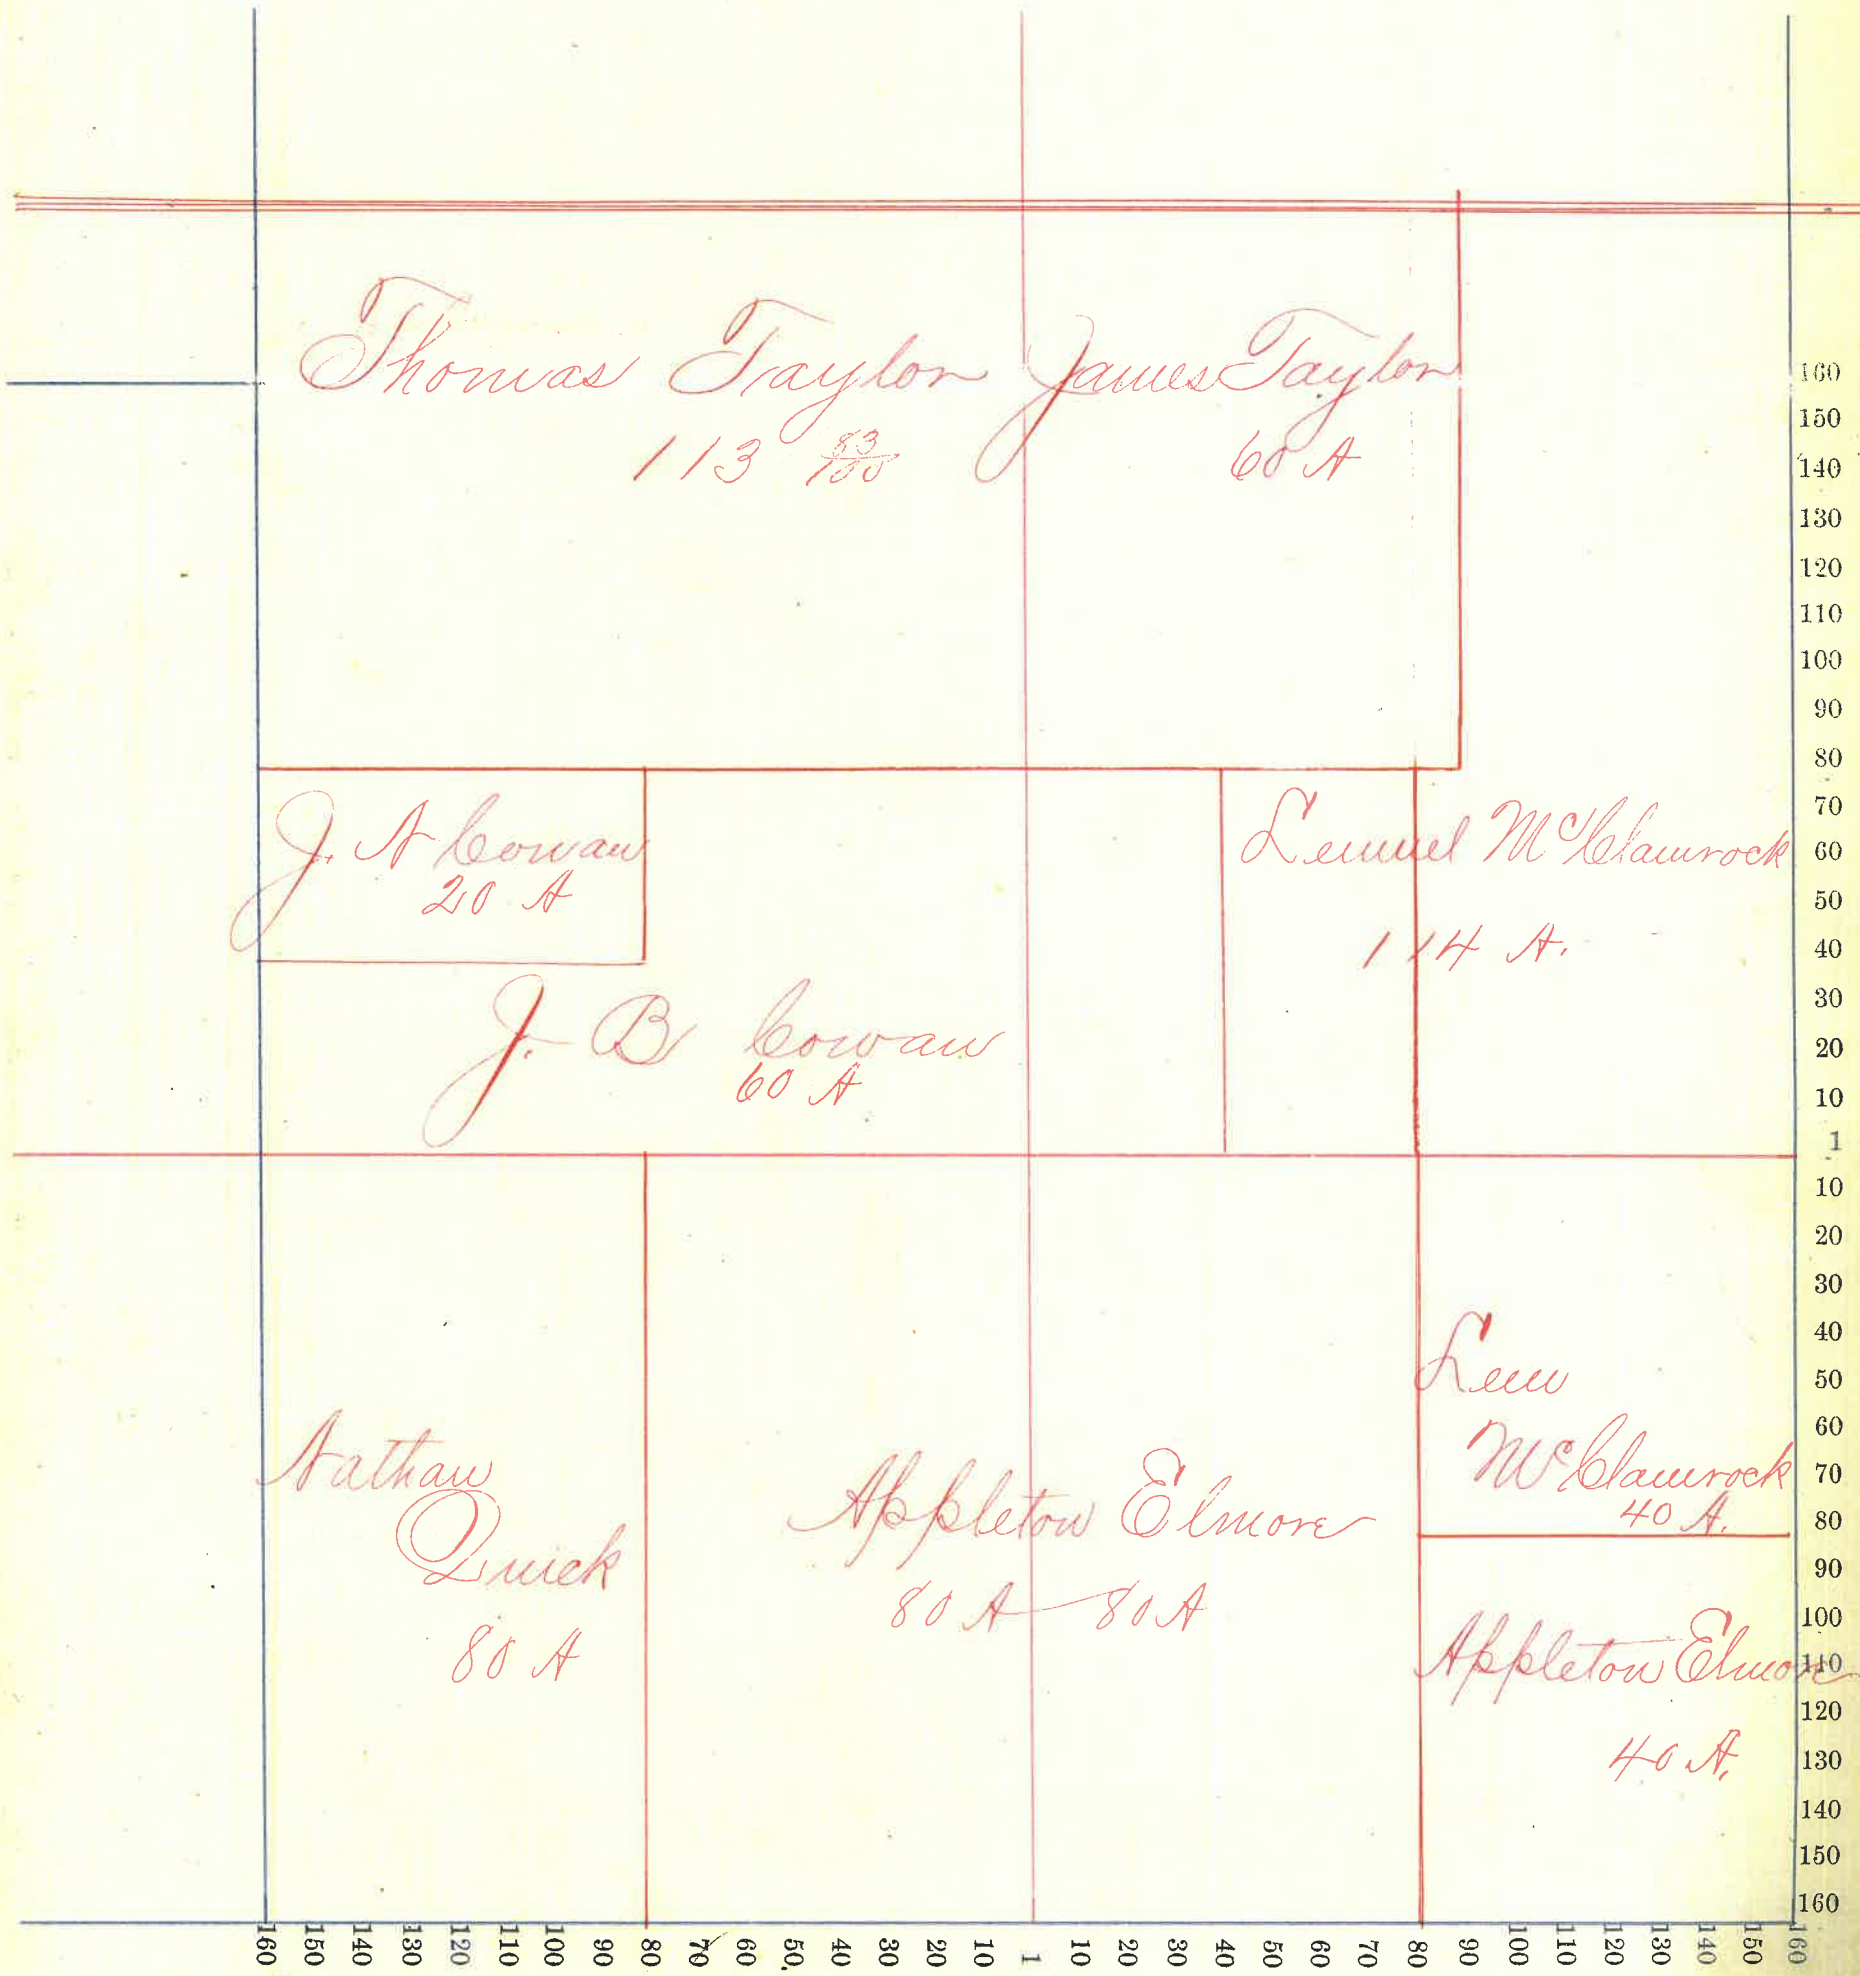 Thomas Taylor
113 83/100
James Taylor
60 A
J. A Cowan
20 A
Lemuel McClamrock
114 A.
J. B Cowan
60 A
Nathan
Quick
80 A
Appleton Elmore
80 A — 80 A
Lem
McClamrock
40 A.
Appleton Elmore
40 A.
160
150
140
130
120
110
100
90
80
70
60
50
40
30
20
10
1
10
20
30
40
50
60
70
80
90
100
110
120
130
140
150
160
160 150 140 130 120 110 100 90 80 70 60 50 40 30 20 10 1 10 20 30 40 50 60 70 80 90 100 110 120 130 140 150 160